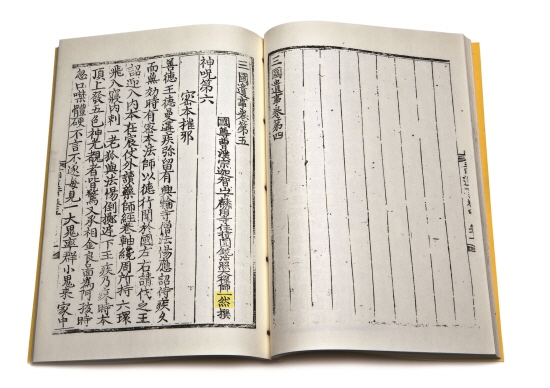 三國遺事卷第四
三國遺事卷第五
國尊曹溪宗迦智山下麟角寺住持圓鏡冲照大禪師一然撰
神呪第六
密本摧邪
善德王德曼遘疾弥留有興輪寺僧法惕應詔侍疾久
而無效時有密本法師以德行聞於國左右請代之王
詔迎入內本在宸仗外讀藥師經卷軸纔周所持六環
飛入寢內刺一老狐與法惕倒擲庭下王疾乃瘳時本
頂上發五色神光覩者皆驚又承相金良圖爲阿孩時
忽口噤體硬不言不遂每見一大鬼率群小鬼來家中